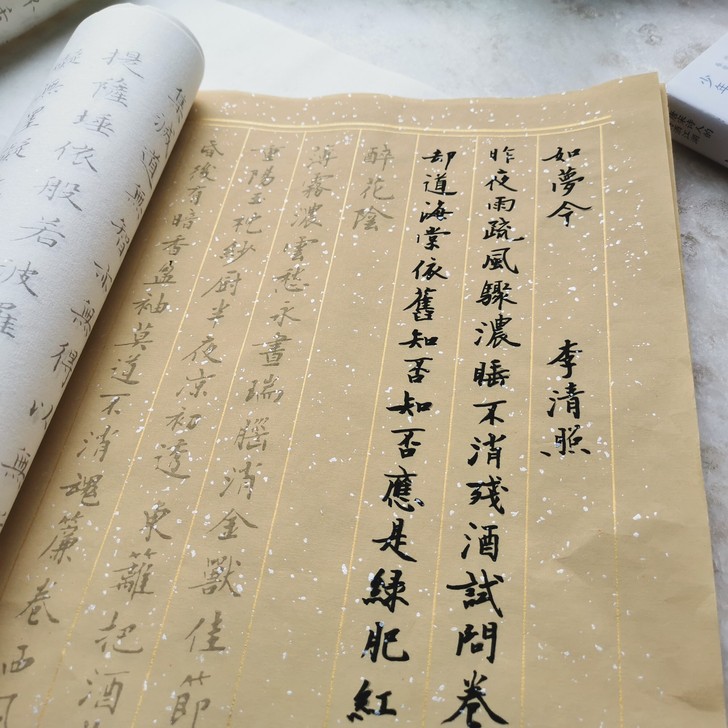 如夢令 李清照
昨夜雨疏風驟濃睡不消殘酒試問卷
却道海棠依舊知否知否應是綠肥紅
醉花陰
薄霧濃雲愁永晝瑞腦消金獸佳節
重陽玉枕紗厨半夜凉初透東籬把酒
昏後有暗香盈袖莫道不消魂簾卷西風
集滅道無智亦無得以無
提薩埵依般若波羅
少年